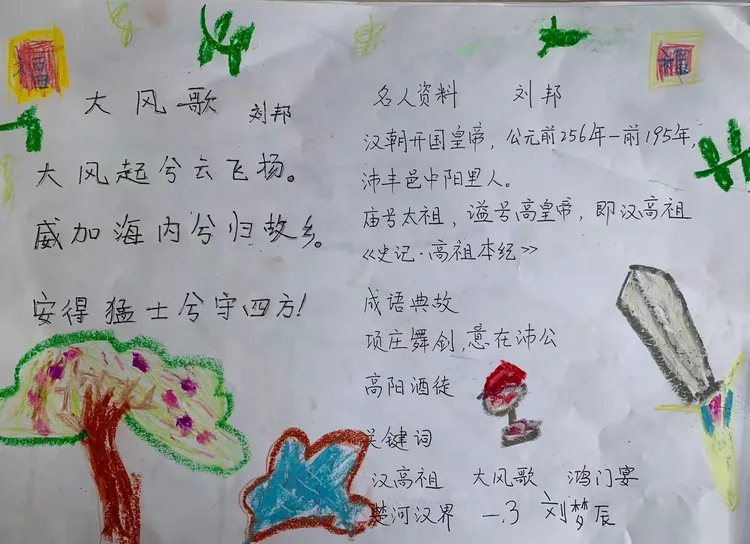 大风歌 刘邦
大风起兮云飞扬。
威加海内兮归故乡。
安得猛士兮守四方!
名人资料 刘邦
汉朝开国皇帝,公元前256年—前195年,
沛丰邑中阳里人。
庙号太祖,谥号高皇帝,即汉高祖
《史记·高祖本纪》
成语典故
项庄舞剑,意在沛公
高阳酒徒
关键词
汉高祖 大风歌 鸿门宴
楚河汉界 一.3 刘梦辰